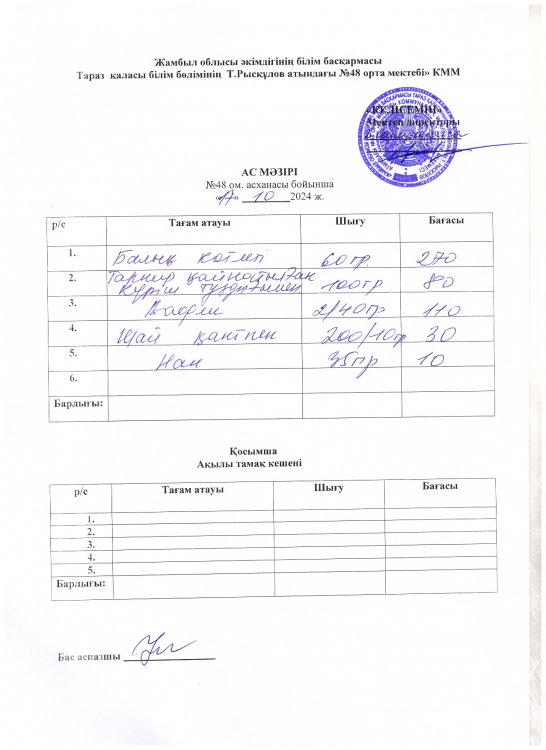 Жамбыл облысы әкімдігінің білім басқармасы
Тараз қаласы білім бөлімінің Т.Рысқұлов атындағы №48 орта мектебі» КММ
«КЕЛІСЕМІН»
Мектеп директоры
АС МӘЗІРІ
№48 ом. асханасы бойынша
«17» 10 2024 ж.
р/с Тағам атауы Шығу Бағасы
1. Балық котлеті 60 гр. 270
2. Гарнир қайнатылған күріш тұздығымен 100гр 80
3. Вафли 2/40гр 110
4. Шай қантпен 200/10гр 30
5. Нан 35гр 10
6.
Барлығы:
Қосымша
Ақылы тамақ кешені
р/с Тағам атауы Шығу Бағасы
1.
2.
3.
4.
5.
Барлығы:
Бас аспазшы